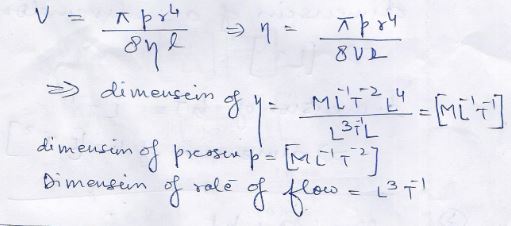 V = πpr⁴ / 8ηl ⇒ η = πpr⁴ / 8Vl
⇒ dimensein of η = ML⁻¹T⁻²L⁴ / L³T⁻¹L = [ML⁻¹T⁻¹]
dimension of presser p = [ML⁻¹T⁻²]
Dimensein of rate of flow = L³T⁻¹